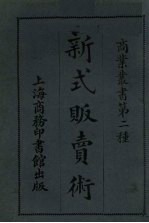 商業叢書第二種
新式販賣術
上海商務印書館出版